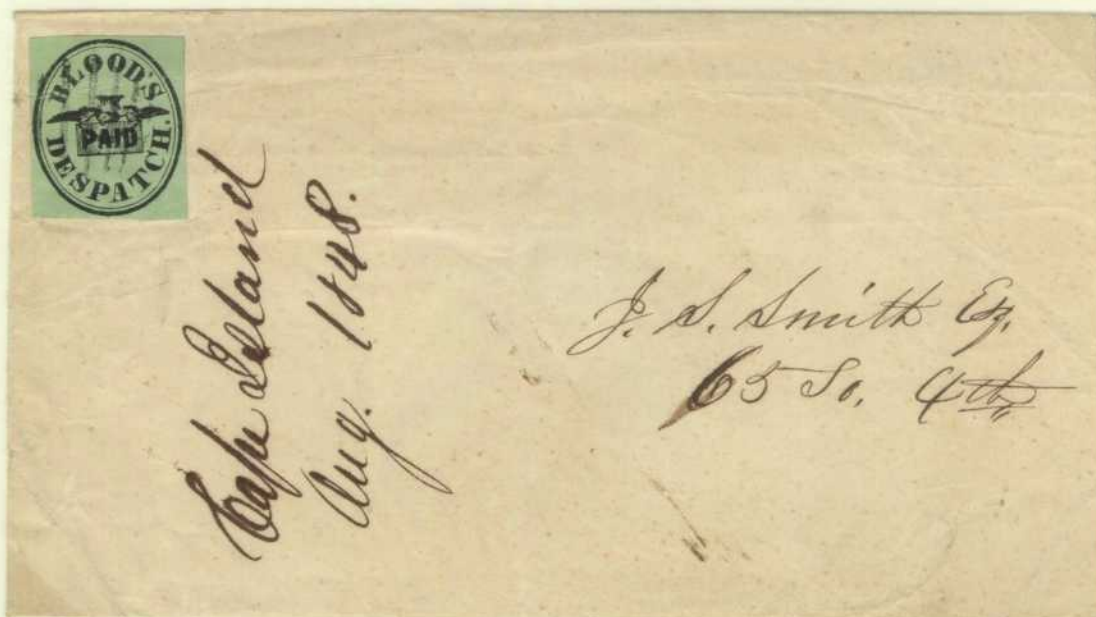 BLOOD'S
PAID
DESPATCH.
Cape Island
Aug. 1848.
J. S. Smith Esq.
65 So. 4th